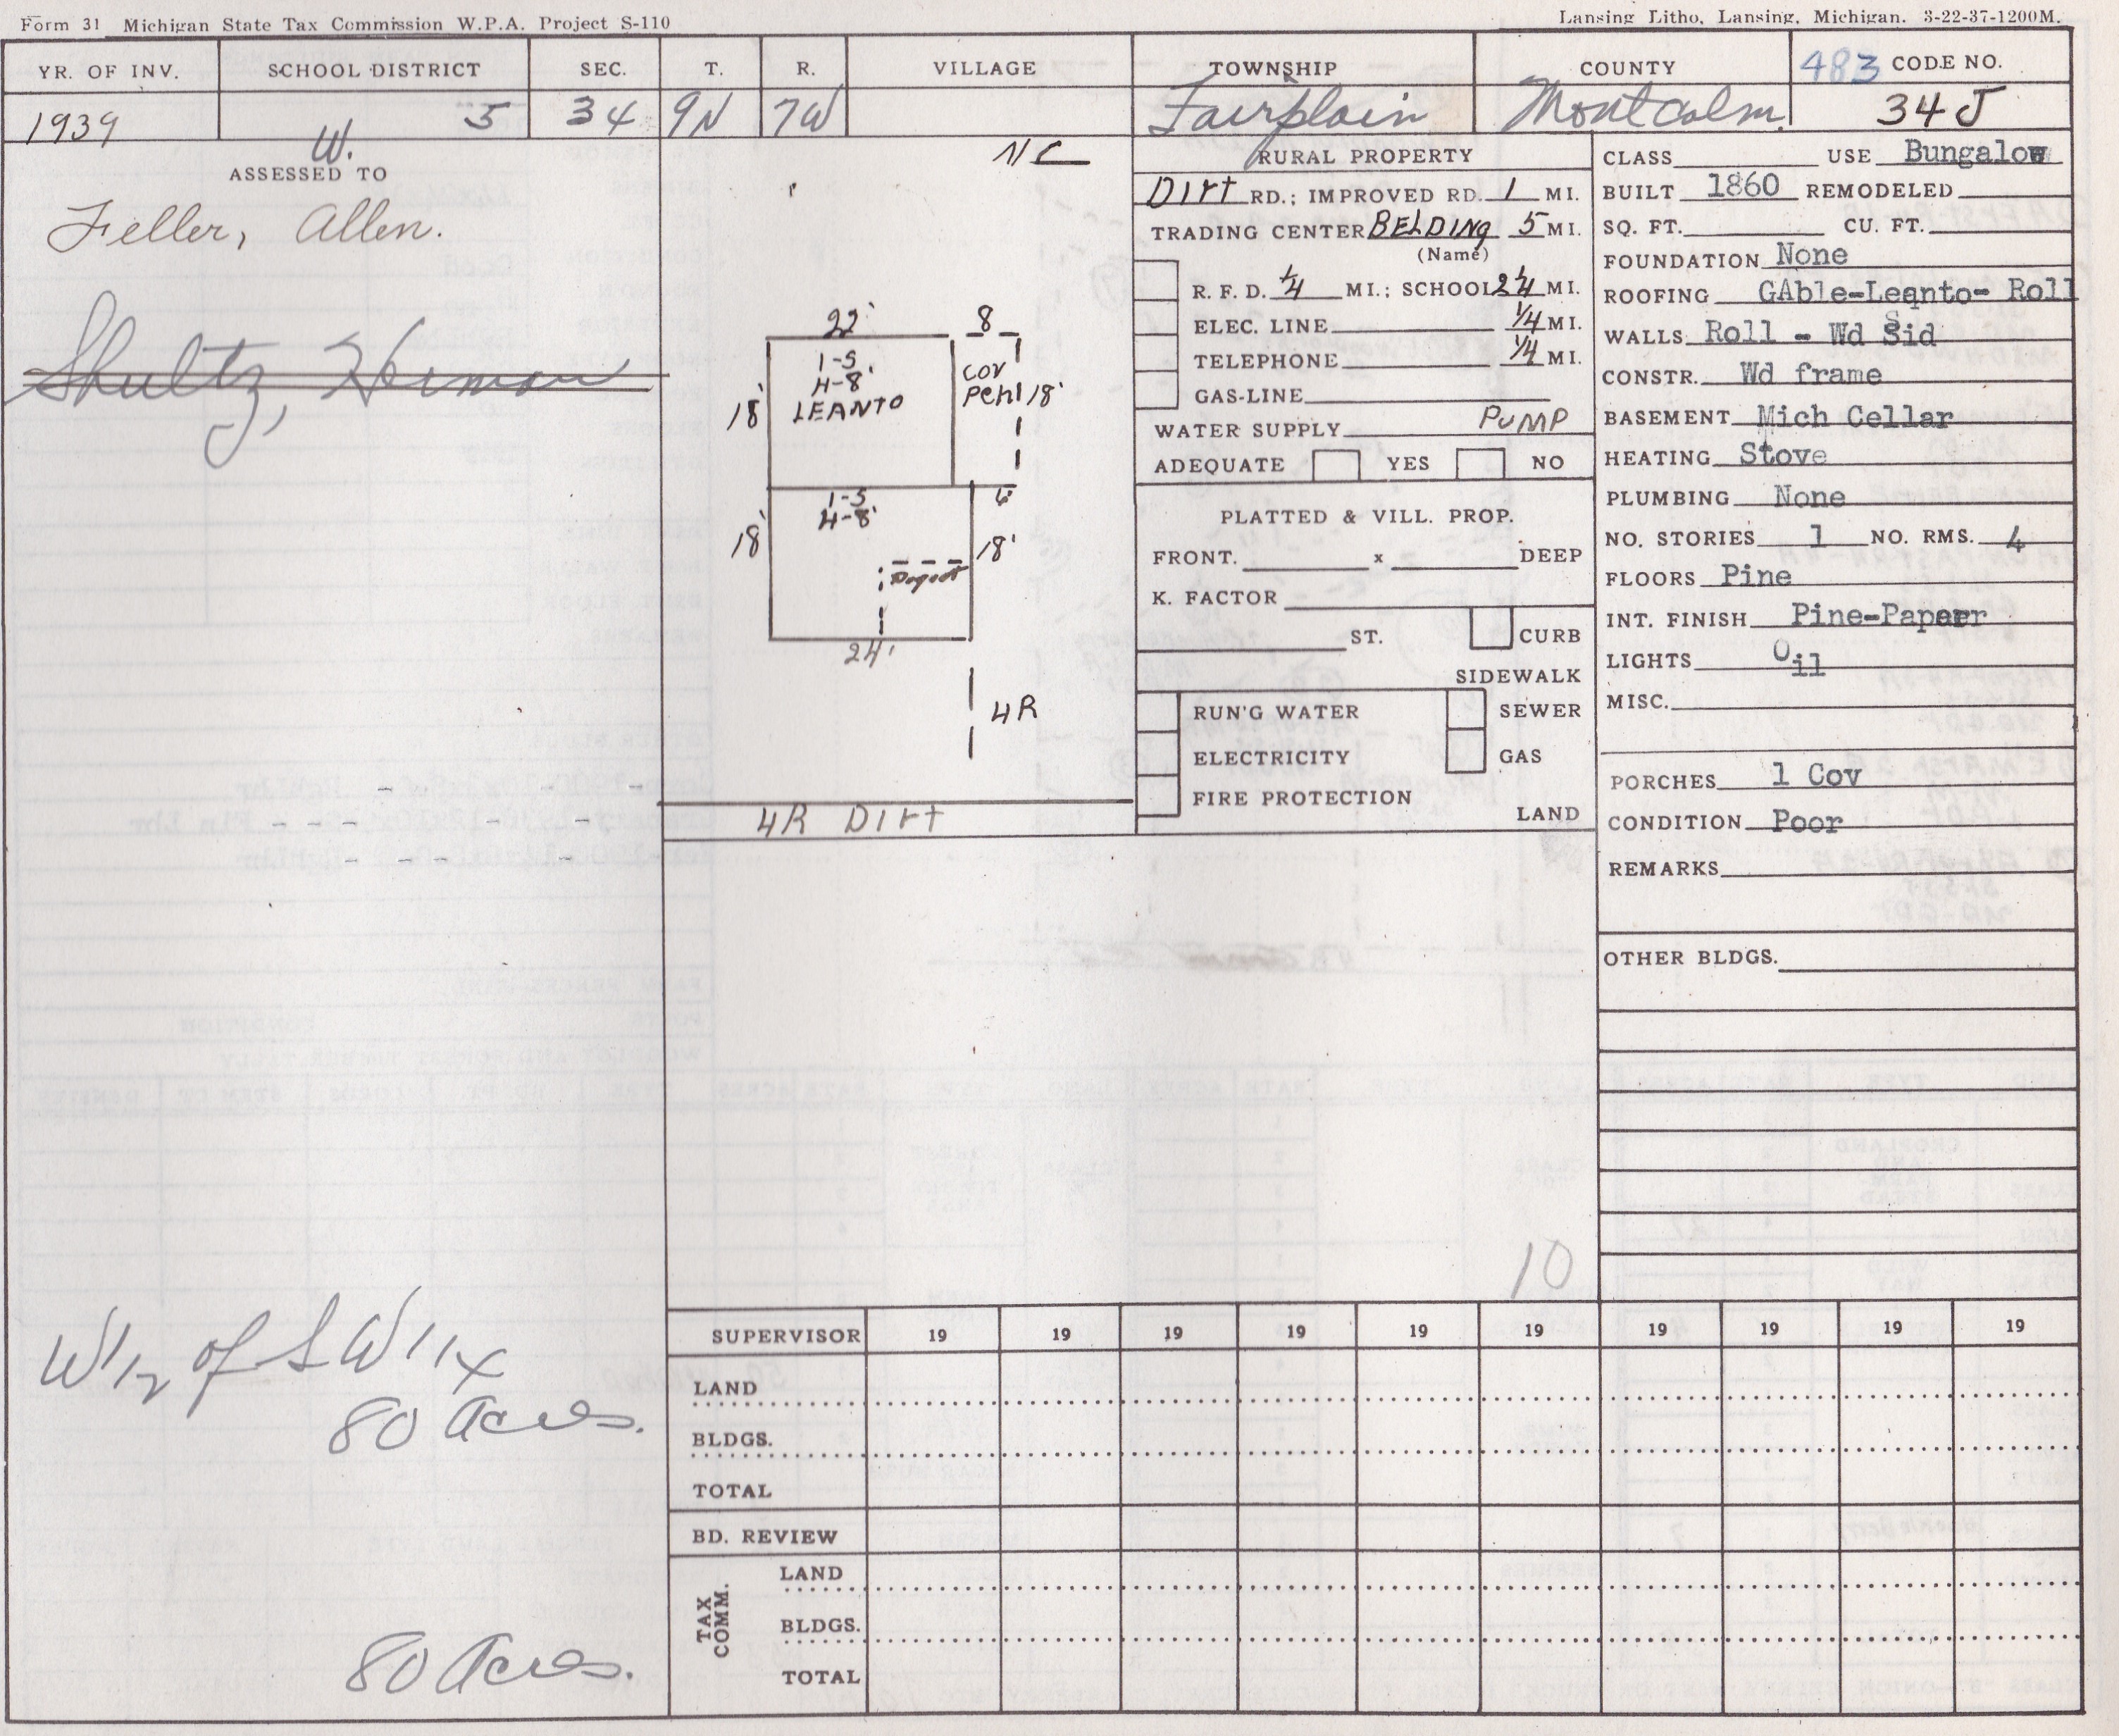 Form 31 Michigan State Tax Commission W.P.A. Project S-110
Lansing Litho, Lansing, Michigan. 3-22-37-1200M.
YR. OF INV. SCHOOL DISTRICT SEC. T. R. VILLAGE TOWNSHIP COUNTY 483 CODE NO.
1939 5 34 9N 7W Fairplain Montcalm 34J
W.
ASSESSED TO
Feller, Allen.
Shultz, Herman
W 1/2 of SW 1/4
80 Acres.
80 Acres.
22' 8
1-S
H-8'
LEANTO
COV
PCH
18' 18'
1-S 6'
H-8'
18' 18'
24'
4R
4R Dirt
RURAL PROPERTY
Dirt RD.; IMPROVED RD. 1 MI.
TRADING CENTER BELDING 5 MI.
(Name)
R. F. D. 1/4 MI.; SCHOOL 2 1/4 MI.
ELEC. LINE 1/4 MI.
TELEPHONE 1/4 MI.
GAS-LINE
WATER SUPPLY PUMP
ADEQUATE YES NO
PLATTED & VILL. PROP.
FRONT. x DEEP
K. FACTOR
ST. CURB
SIDEWALK
RUN'G WATER SEWER
ELECTRICITY GAS
FIRE PROTECTION
LAND
CLASS USE Bungalow
BUILT 1860 REMODELED
SQ. FT. CU. FT.
FOUNDATION None
ROOFING GAble-Leanto- Roll
WALLS Roll - Wd Sid
CONSTR. Wd frame
BASEMENT Mich Cellar
HEATING Stove
PLUMBING None
NO. STORIES 1 NO. RMS. 4
FLOORS Pine
INT. FINISH Pine-Paper
LIGHTS Oil
MISC.
PORCHES 1 Cov
CONDITION Poor
REMARKS
OTHER BLDGS.
10
SUPERVISOR 19 19 19 19 19 19 19 19 19 19
LAND
BLDGS.
TOTAL
BD. REVIEW
TAX COMM.
LAND
BLDGS.
TOTAL